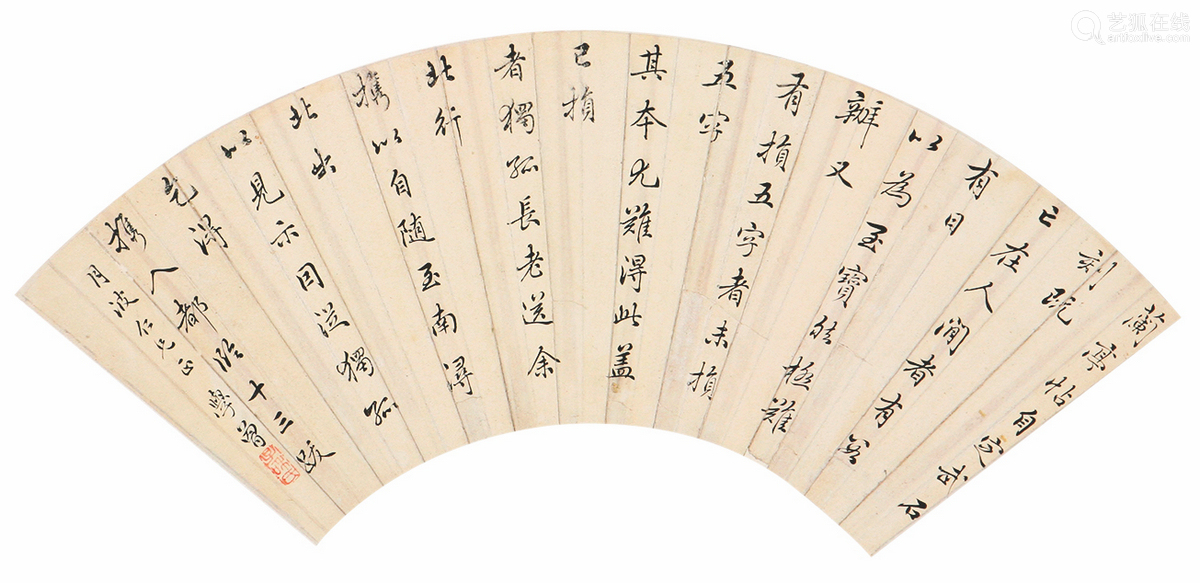 蘭亭帖自定武石
刻既
亡在人間者有數
有日
以為至寶然極難
辨又
有損五字者未損
五字
其本尤難得此蓋
已損
者獨孤長老送余
北行
携以自隨至南潯
北出
以見示因從獨孤
乞得
携入都臨十三跋
月波仁兄正 學曾
艺狐在线
artfoxlive.com